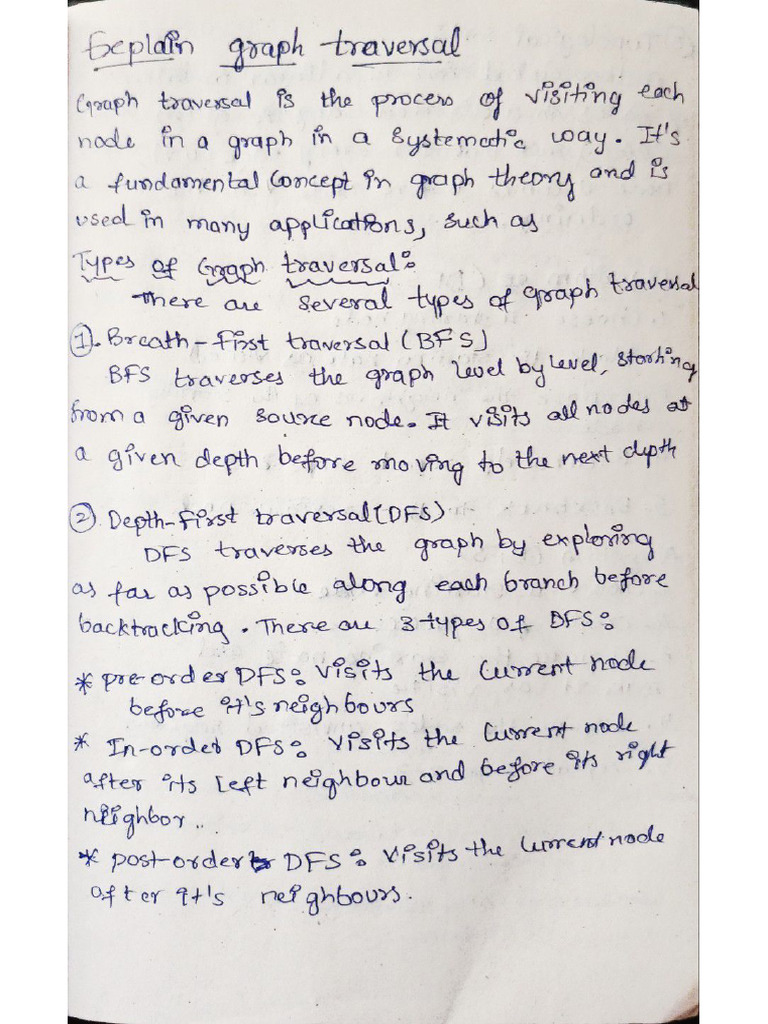 Explain graph traversal
Graph traversal is the process of visiting each
node in a graph in a systematic way. It's
a fundamental concept in graph theory and is
used in many applications, such as
Types of Graph traversal:
There are several types of graph traversal
1. Breath-first traversal (BFS)
BFS traverses the graph level by level, starting
from a given source node. It visits all nodes at
a given depth before moving to the next depth
2 Depth-First traversal (DFS)
DFS traverses the graph by exploring
as far as possible along each branch before
backtracking. There are 3-types of DFS:
* pre-order DFS: visits the current node
before it's neighbours
* In-order DFS: visits the current node
after its left neighbour and before its right
neighbor..
* post-order DFS: visits the current node
after it's neighbours.